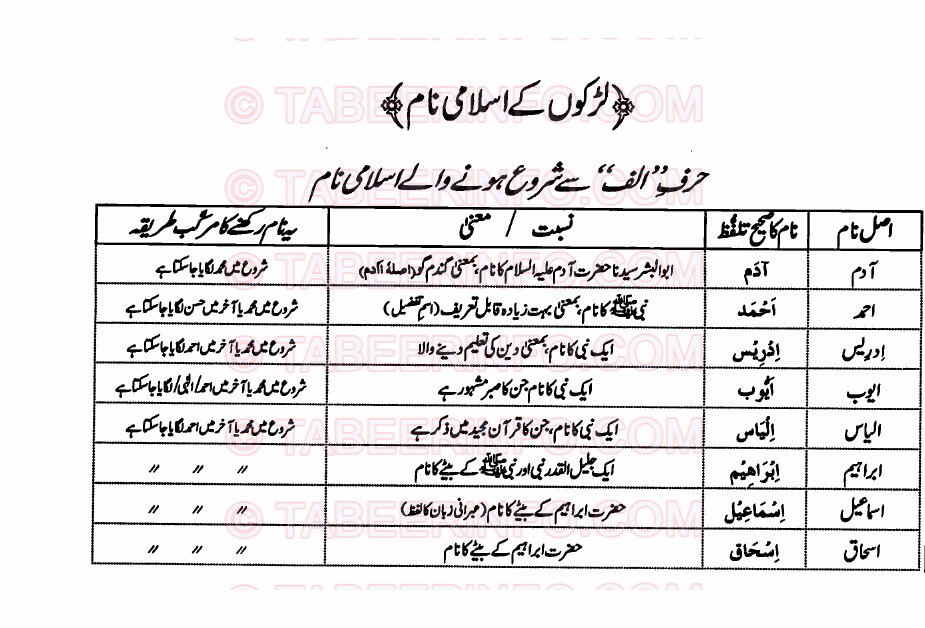 © TABEERINFO.COM
﴿لڑکوں کے اسلامی نام﴾
حرفِ ”الف“ سے شروع ہونے والے اسلامی نام
اصل نام | نام کا صحیح تلفّظ | نسبت / معنیٰ | یہ نام رکھنے کا مرکب طریقہ
آدم | آدَم | ابوالبشر سیدنا حضرت آدم علیہ السلام کا نام، بمعنیٰ گندم گو (اصلہٗ أادم) | شروع میں محمد لگایا جاسکتا ہے
احمد | اَحْمَد | نبی ﷺ کا نام، بمعنیٰ بہت زیادہ قابل تعریف (اسمِ تفضیل) | شروع میں محمد یا آخر میں حسن لگایا جاسکتا ہے
اِدریس | اِدْرِیْس | ایک نبی کا نام، بمعنیٰ دین کی تعلیم دینے والا | شروع میں محمد یا آخر میں احمد لگایا جاسکتا ہے
ایوب | اَیُّوب | ایک نبی کا نام جن کا صبر مشہور ہے | شروع میں محمد یا آخر میں احمد/الٰہی/لگایا جاسکتا ہے
الیاس | اِلْیَاس | ایک نبی کا نام، جن کا قرآن مجید میں ذکر ہے | شروع میں محمد یا آخر میں احمد لگایا جاسکتا ہے
ابراہیم | اِبْرَاهِیْم | ایک جلیل القدر نبی اور نبی ﷺ کے بیٹے کا نام | 〃 〃 〃
اسماعیل | اِسْمَاعِیْل | حضرت ابراہیم کے بیٹے کا نام (عبرانی زبان کا لفظ) | 〃 〃 〃
اسحاق | اِسْحَاق | حضرت ابراہیم کے بیٹے کا نام | 〃 〃 〃